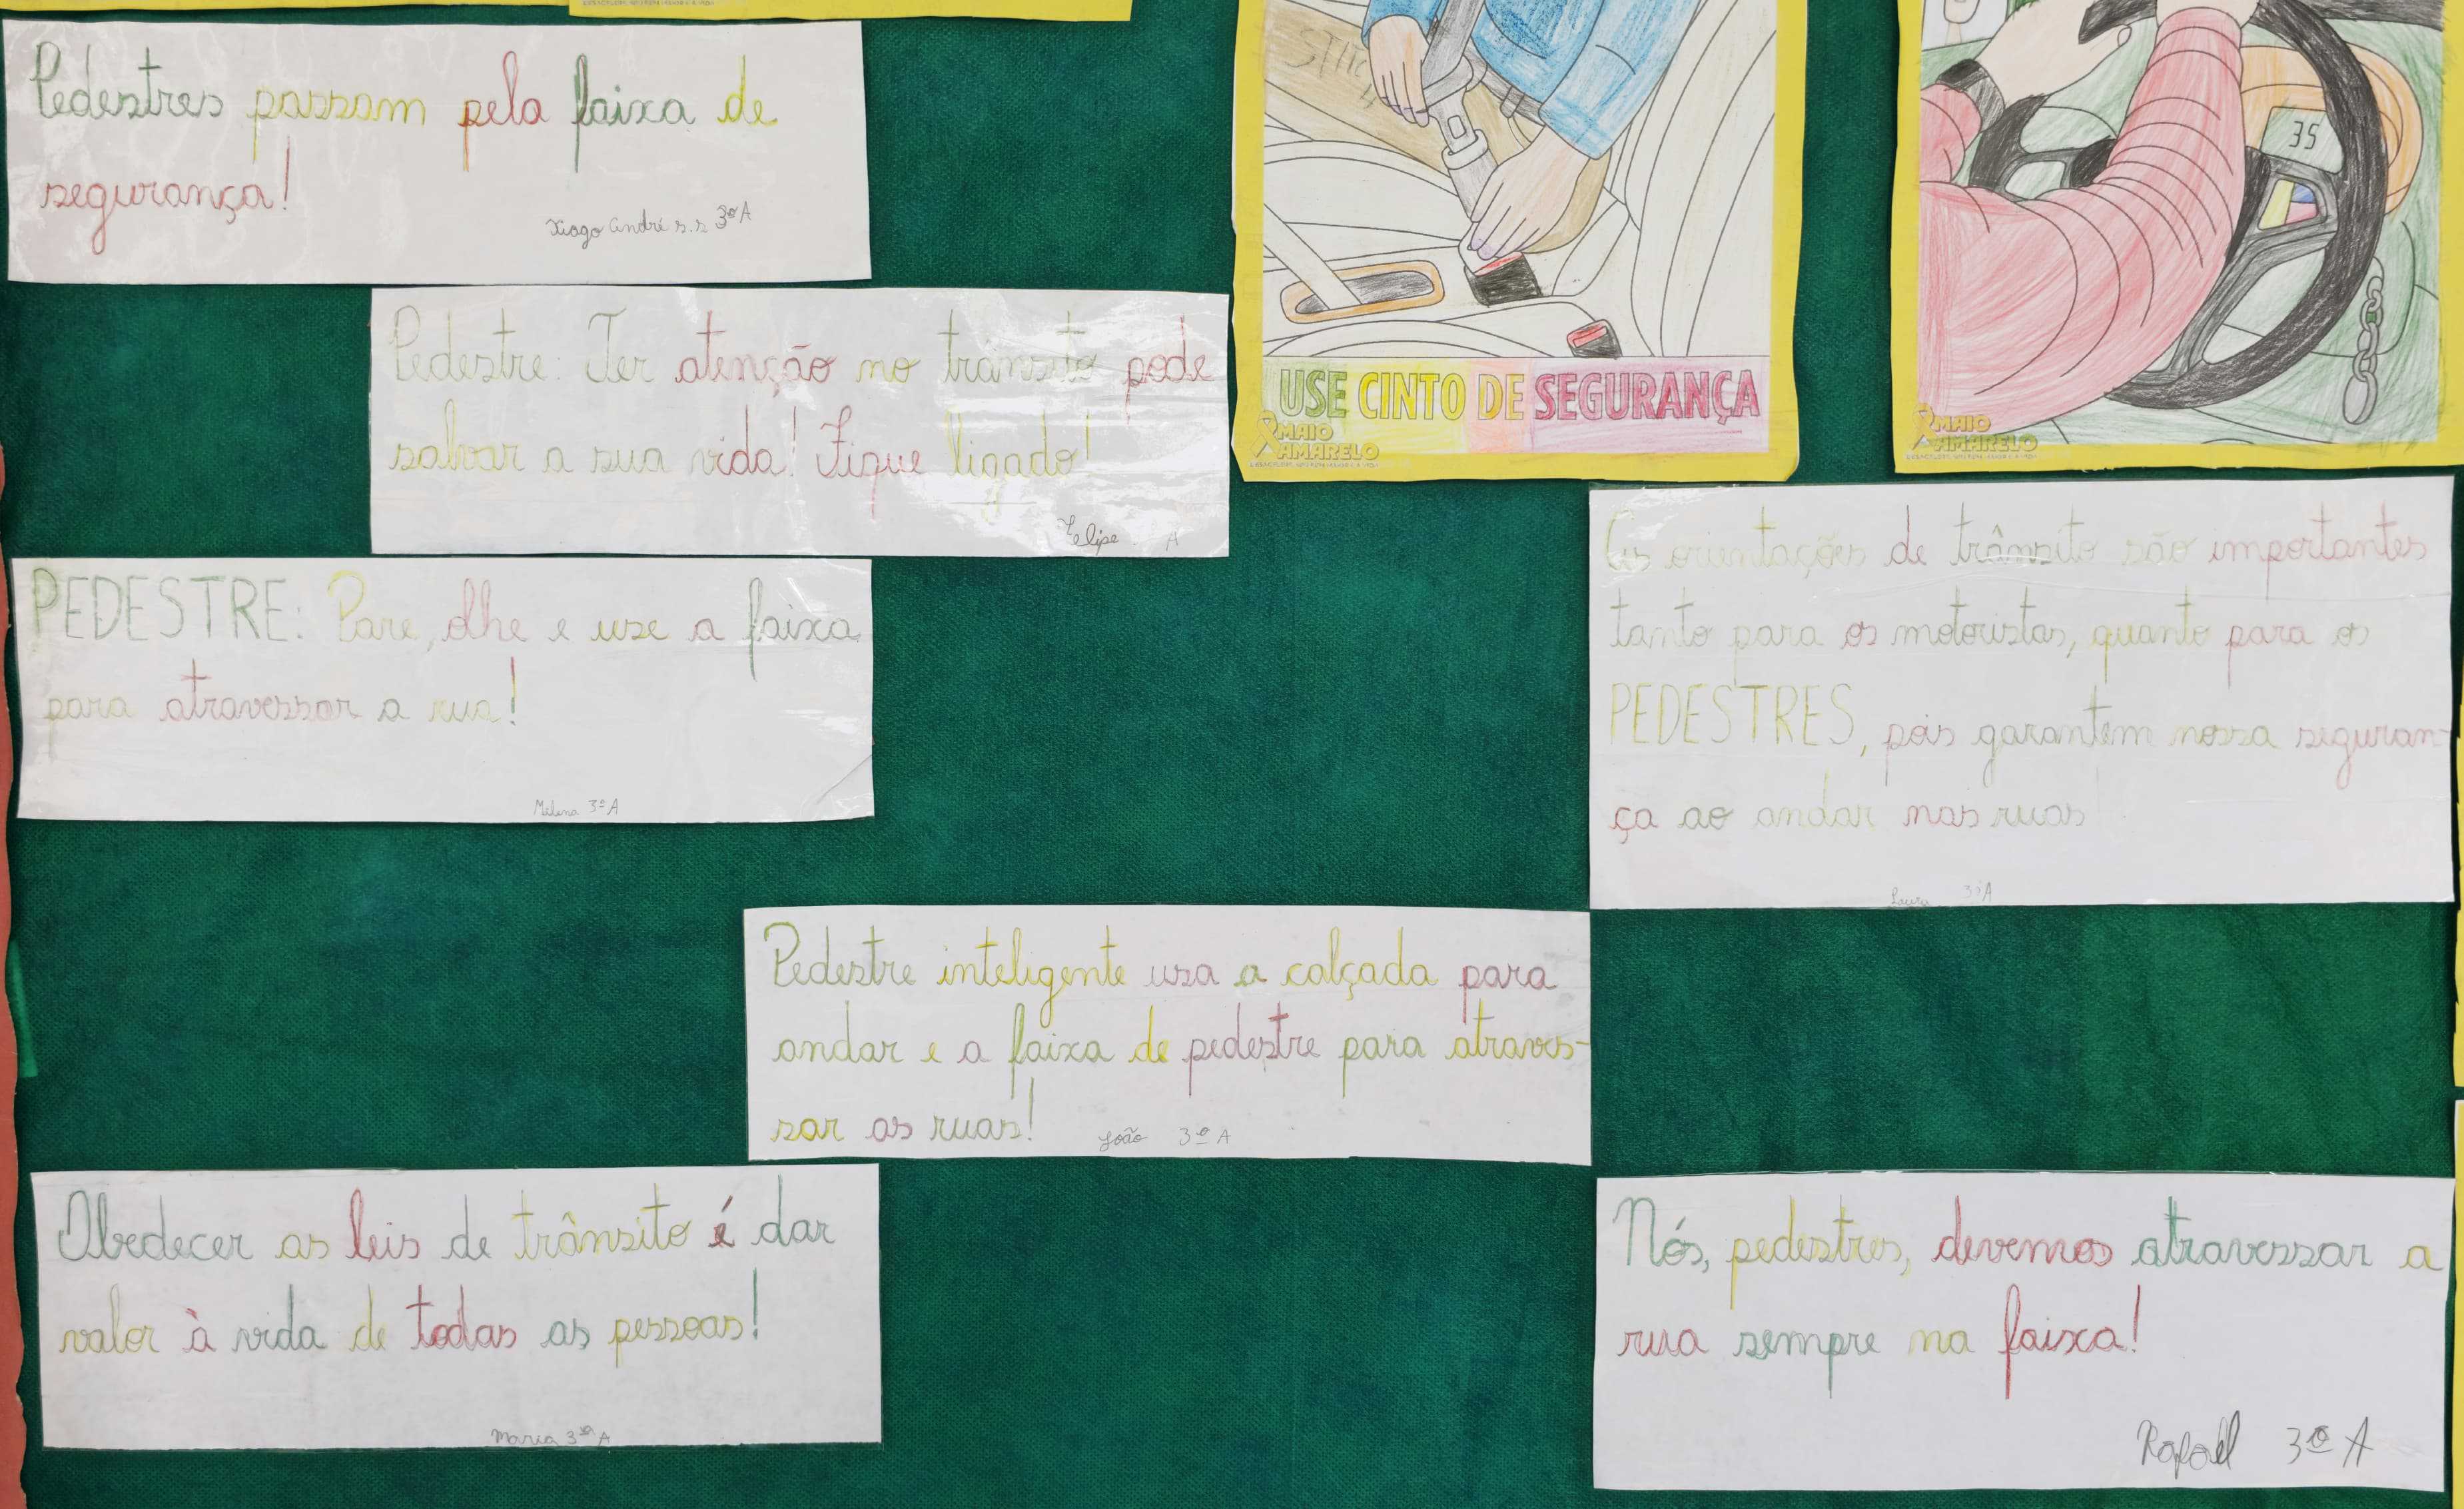 Pedestres passam pela faixa de
segurança!
Tiago André s.s 3º A
Pedestre: Ter atenção no trânsito pode
salvar a sua vida! Fique ligado!
Felipe A
PEDESTRE: Pare, olhe e use a faixa
para atravessar a rua!
Melina 3º A
USE CINTO DE SEGURANÇA
MAIO
AMARELO
35
MAIO
AMARELO
As orientações de trânsito são importantes
tanto para os motoristas, quanto para os
PEDESTRES, pois garantem nossa seguran-
ça ao andar nas ruas!
Laura 3º A
Pedestre inteligente usa a calçada para
andar e a faixa de pedestre para atraves-
sar as ruas!
João 3º A
Obedecer as leis de trânsito é dar
valor à vida de todas as pessoas!
Maria 3º A
Nós, pedestres, devemos atravessar a
rua sempre na faixa!
Rafael 3º A